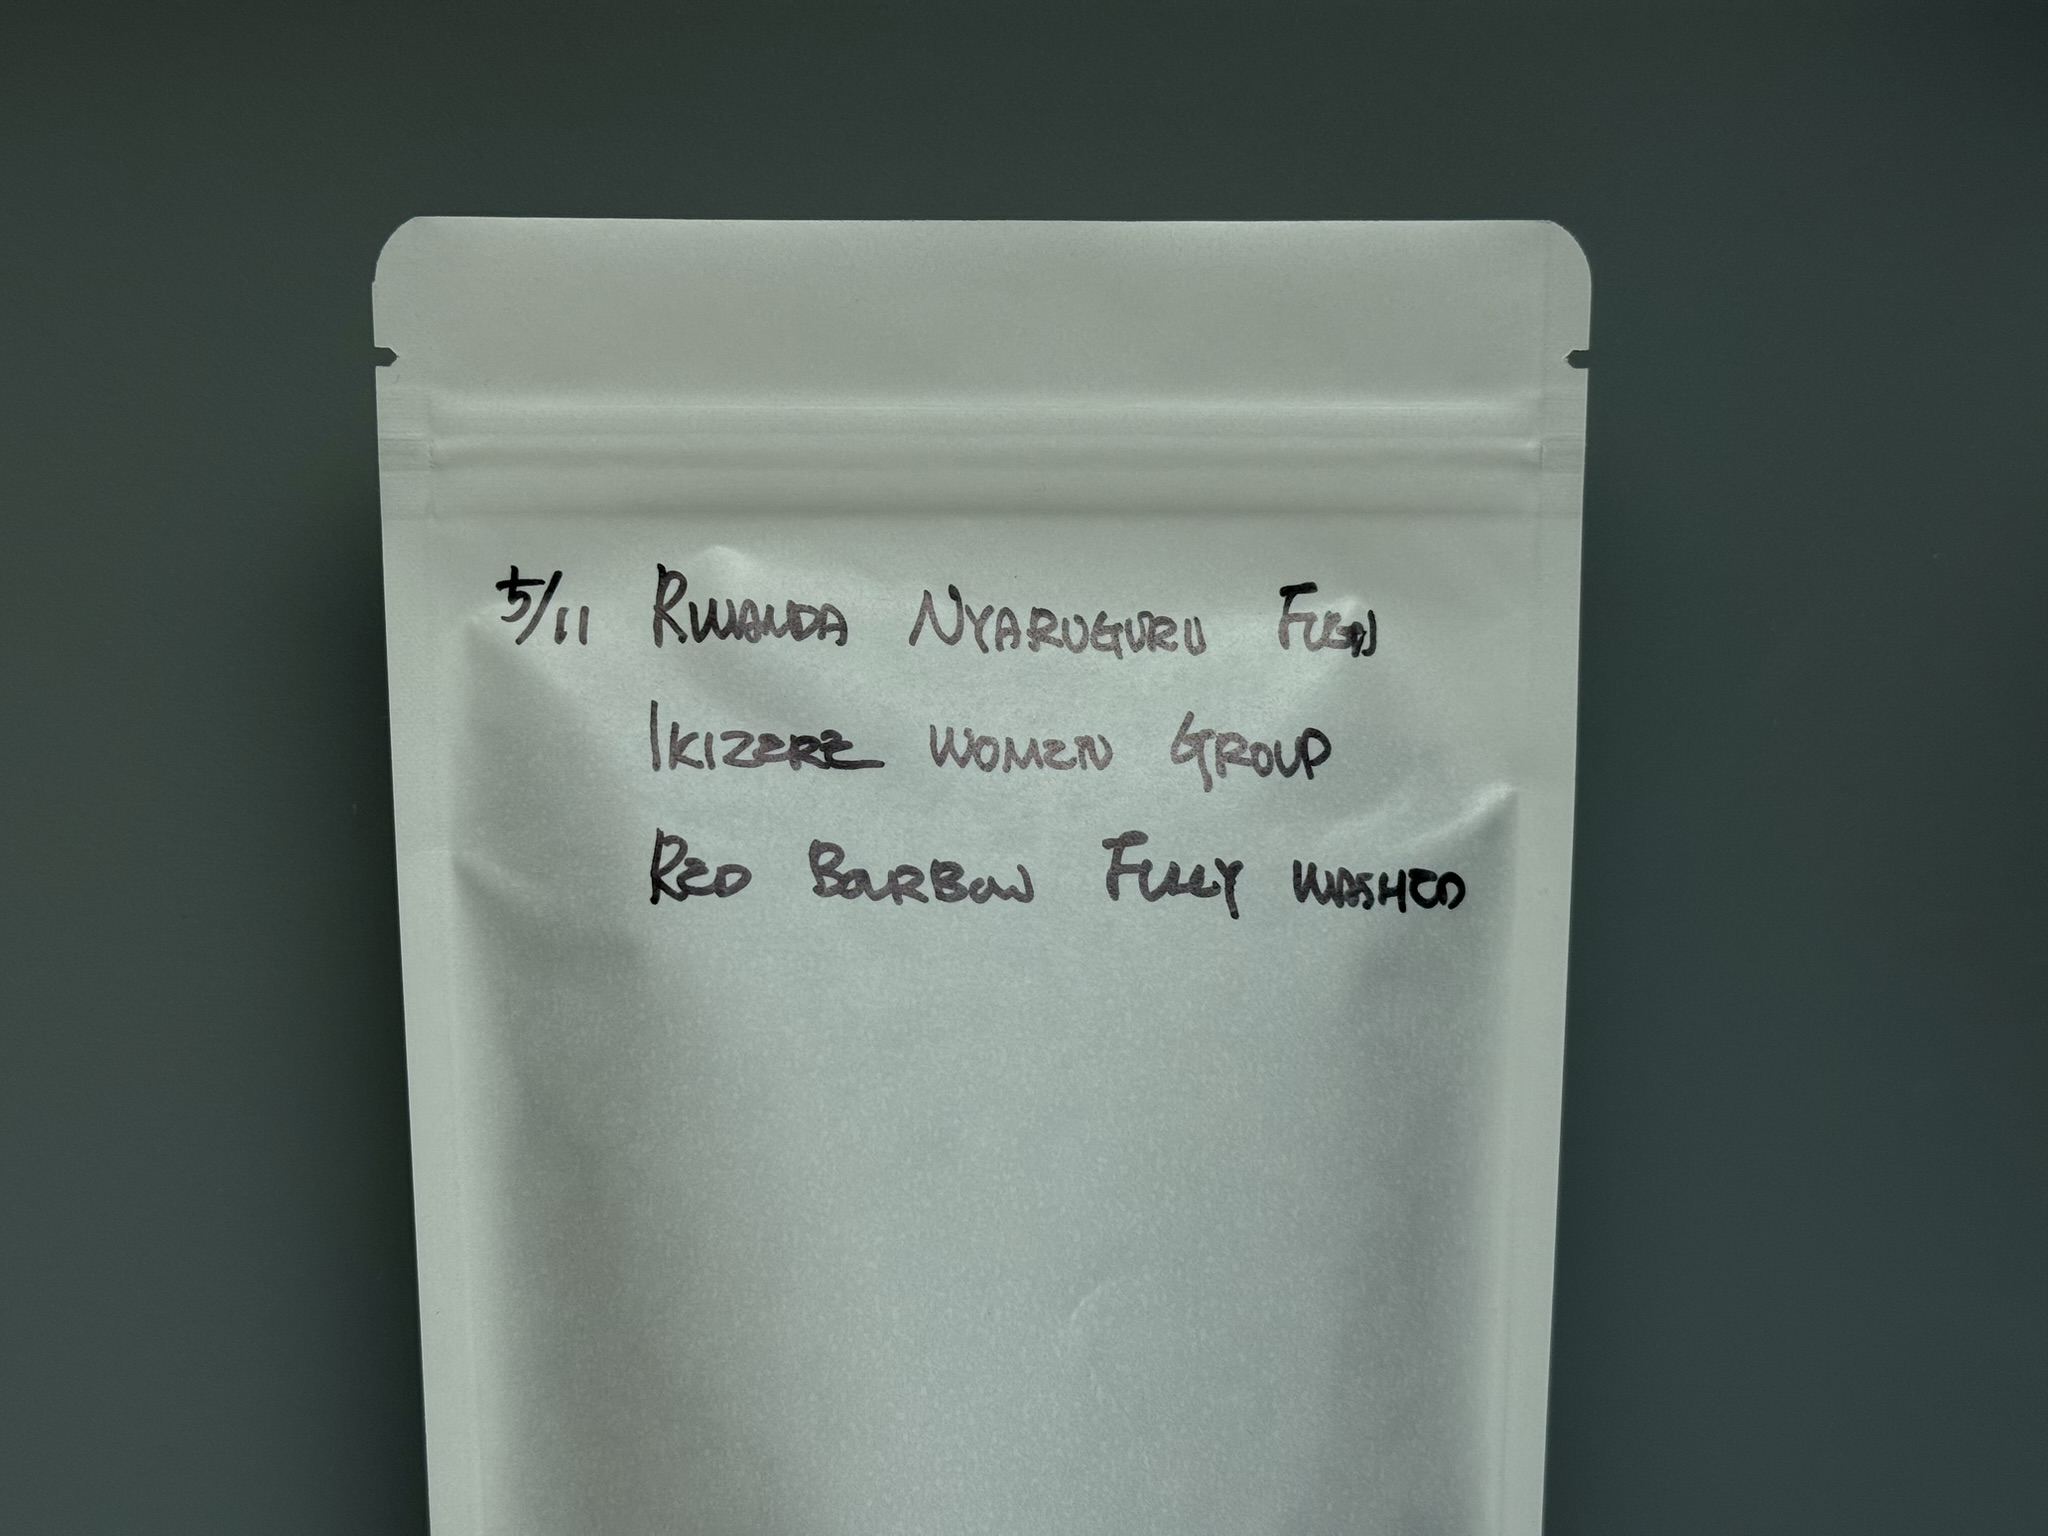 5/11 Rwanda Nyaruguru Fugi
Ikizere Women Group
Red Bourbon Fully Washed